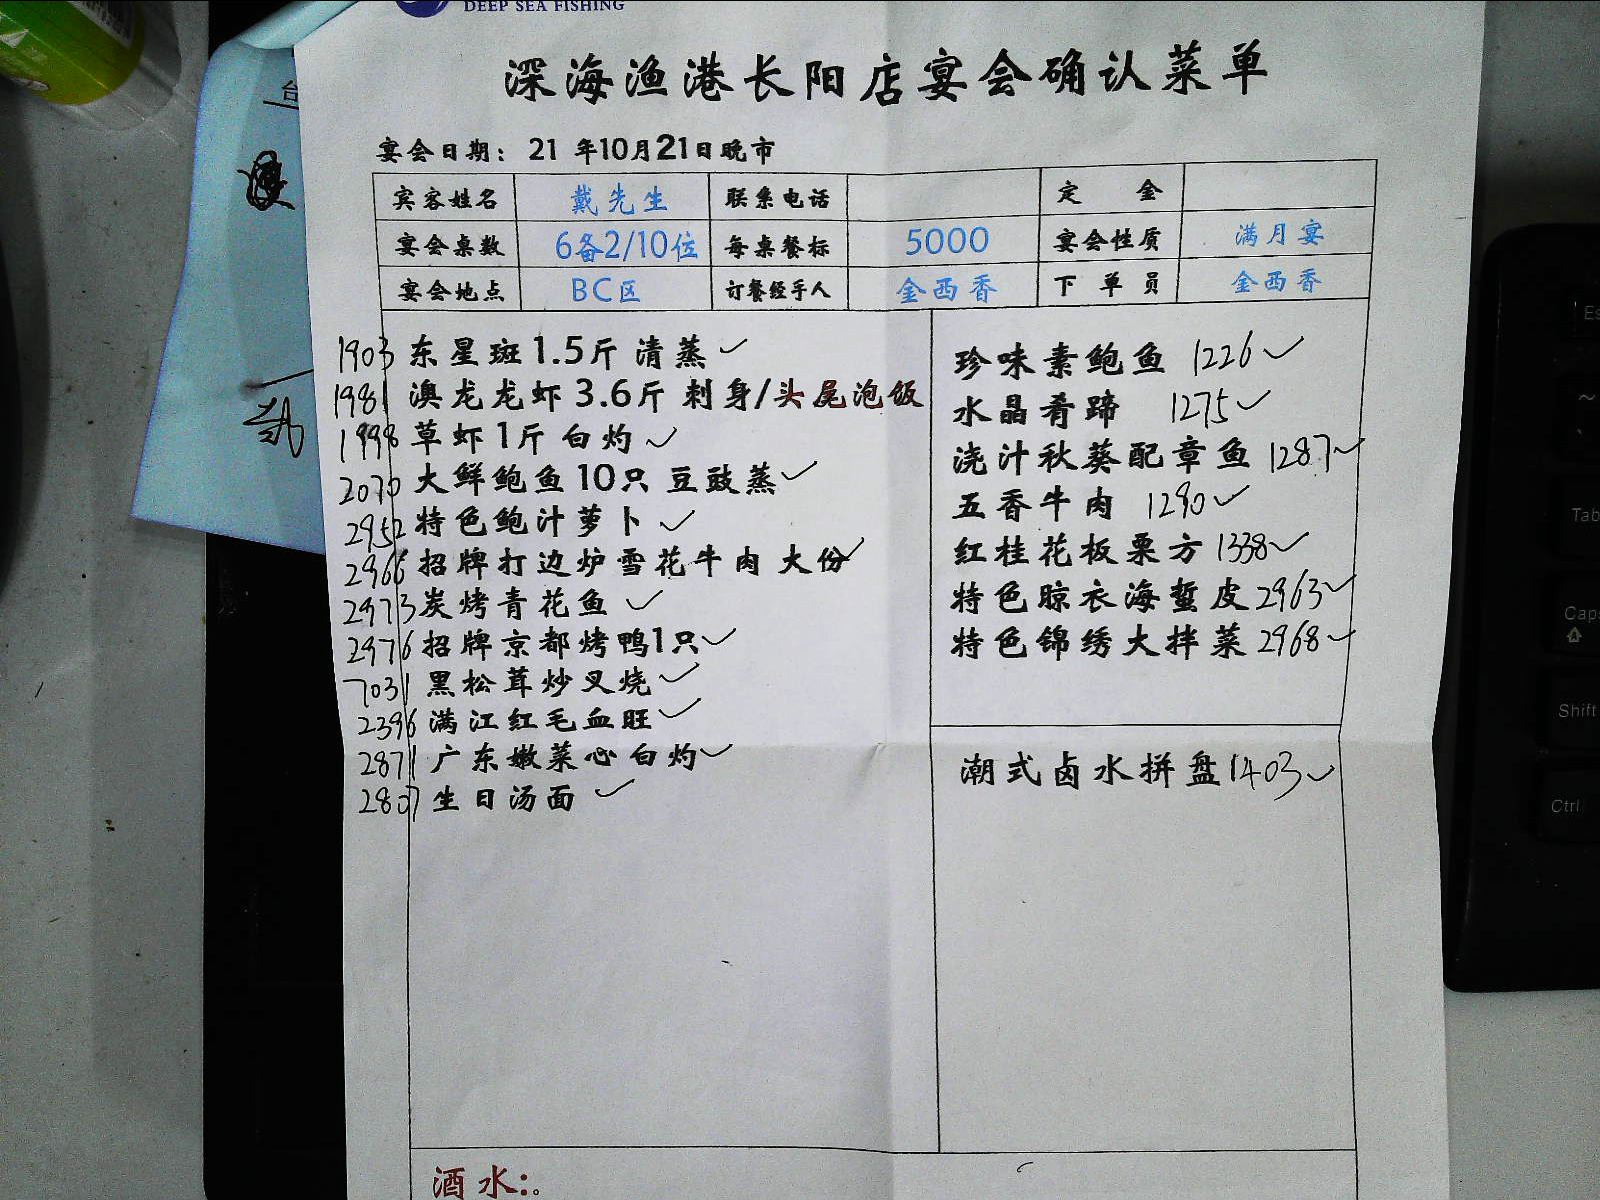 DEEP SEA FISHING
深海渔港长阳店宴会确认菜单
宴会日期：21 年10月21日晚市
宾客姓名 戴先生 联系电话 定 金
宴会桌数 6备2/10位 每桌餐标 5000 宴会性质 满月宴
宴会地点 BC区 订餐经手人 金西香 下 单 员 金西香
1903 东星斑1.5斤 清蒸 ✓
1981 澳龙龙虾3.6斤 刺身/头尾泡饭
1998 草虾1斤白灼 ✓
2070 大鲜鲍鱼10只 豆豉蒸 ✓
2952 特色鲍汁萝卜 ✓
2966 招牌打边炉雪花牛肉 大份 ✓
2973 炭烤青花鱼 ✓
2976 招牌京都烤鸭1只 ✓
7031 黑松茸炒叉烧 ✓
2396 满江红毛血旺 ✓
2871 广东嫩菜心白灼 ✓
2807 生日汤面 ✓
珍味素鲍鱼 1226 ✓
水晶肴蹄 1275 ✓
浇汁秋葵配章鱼 1287 ✓
五香牛肉 1290 ✓
红桂花板栗方 1338 ✓
特色晾衣海蜇皮 2963 ✓
特色锦绣大拌菜 2968 ✓
潮式卤水拼盘 1403 ✓
酒水:。
台
Tab
Caps
Shift
Ctrl